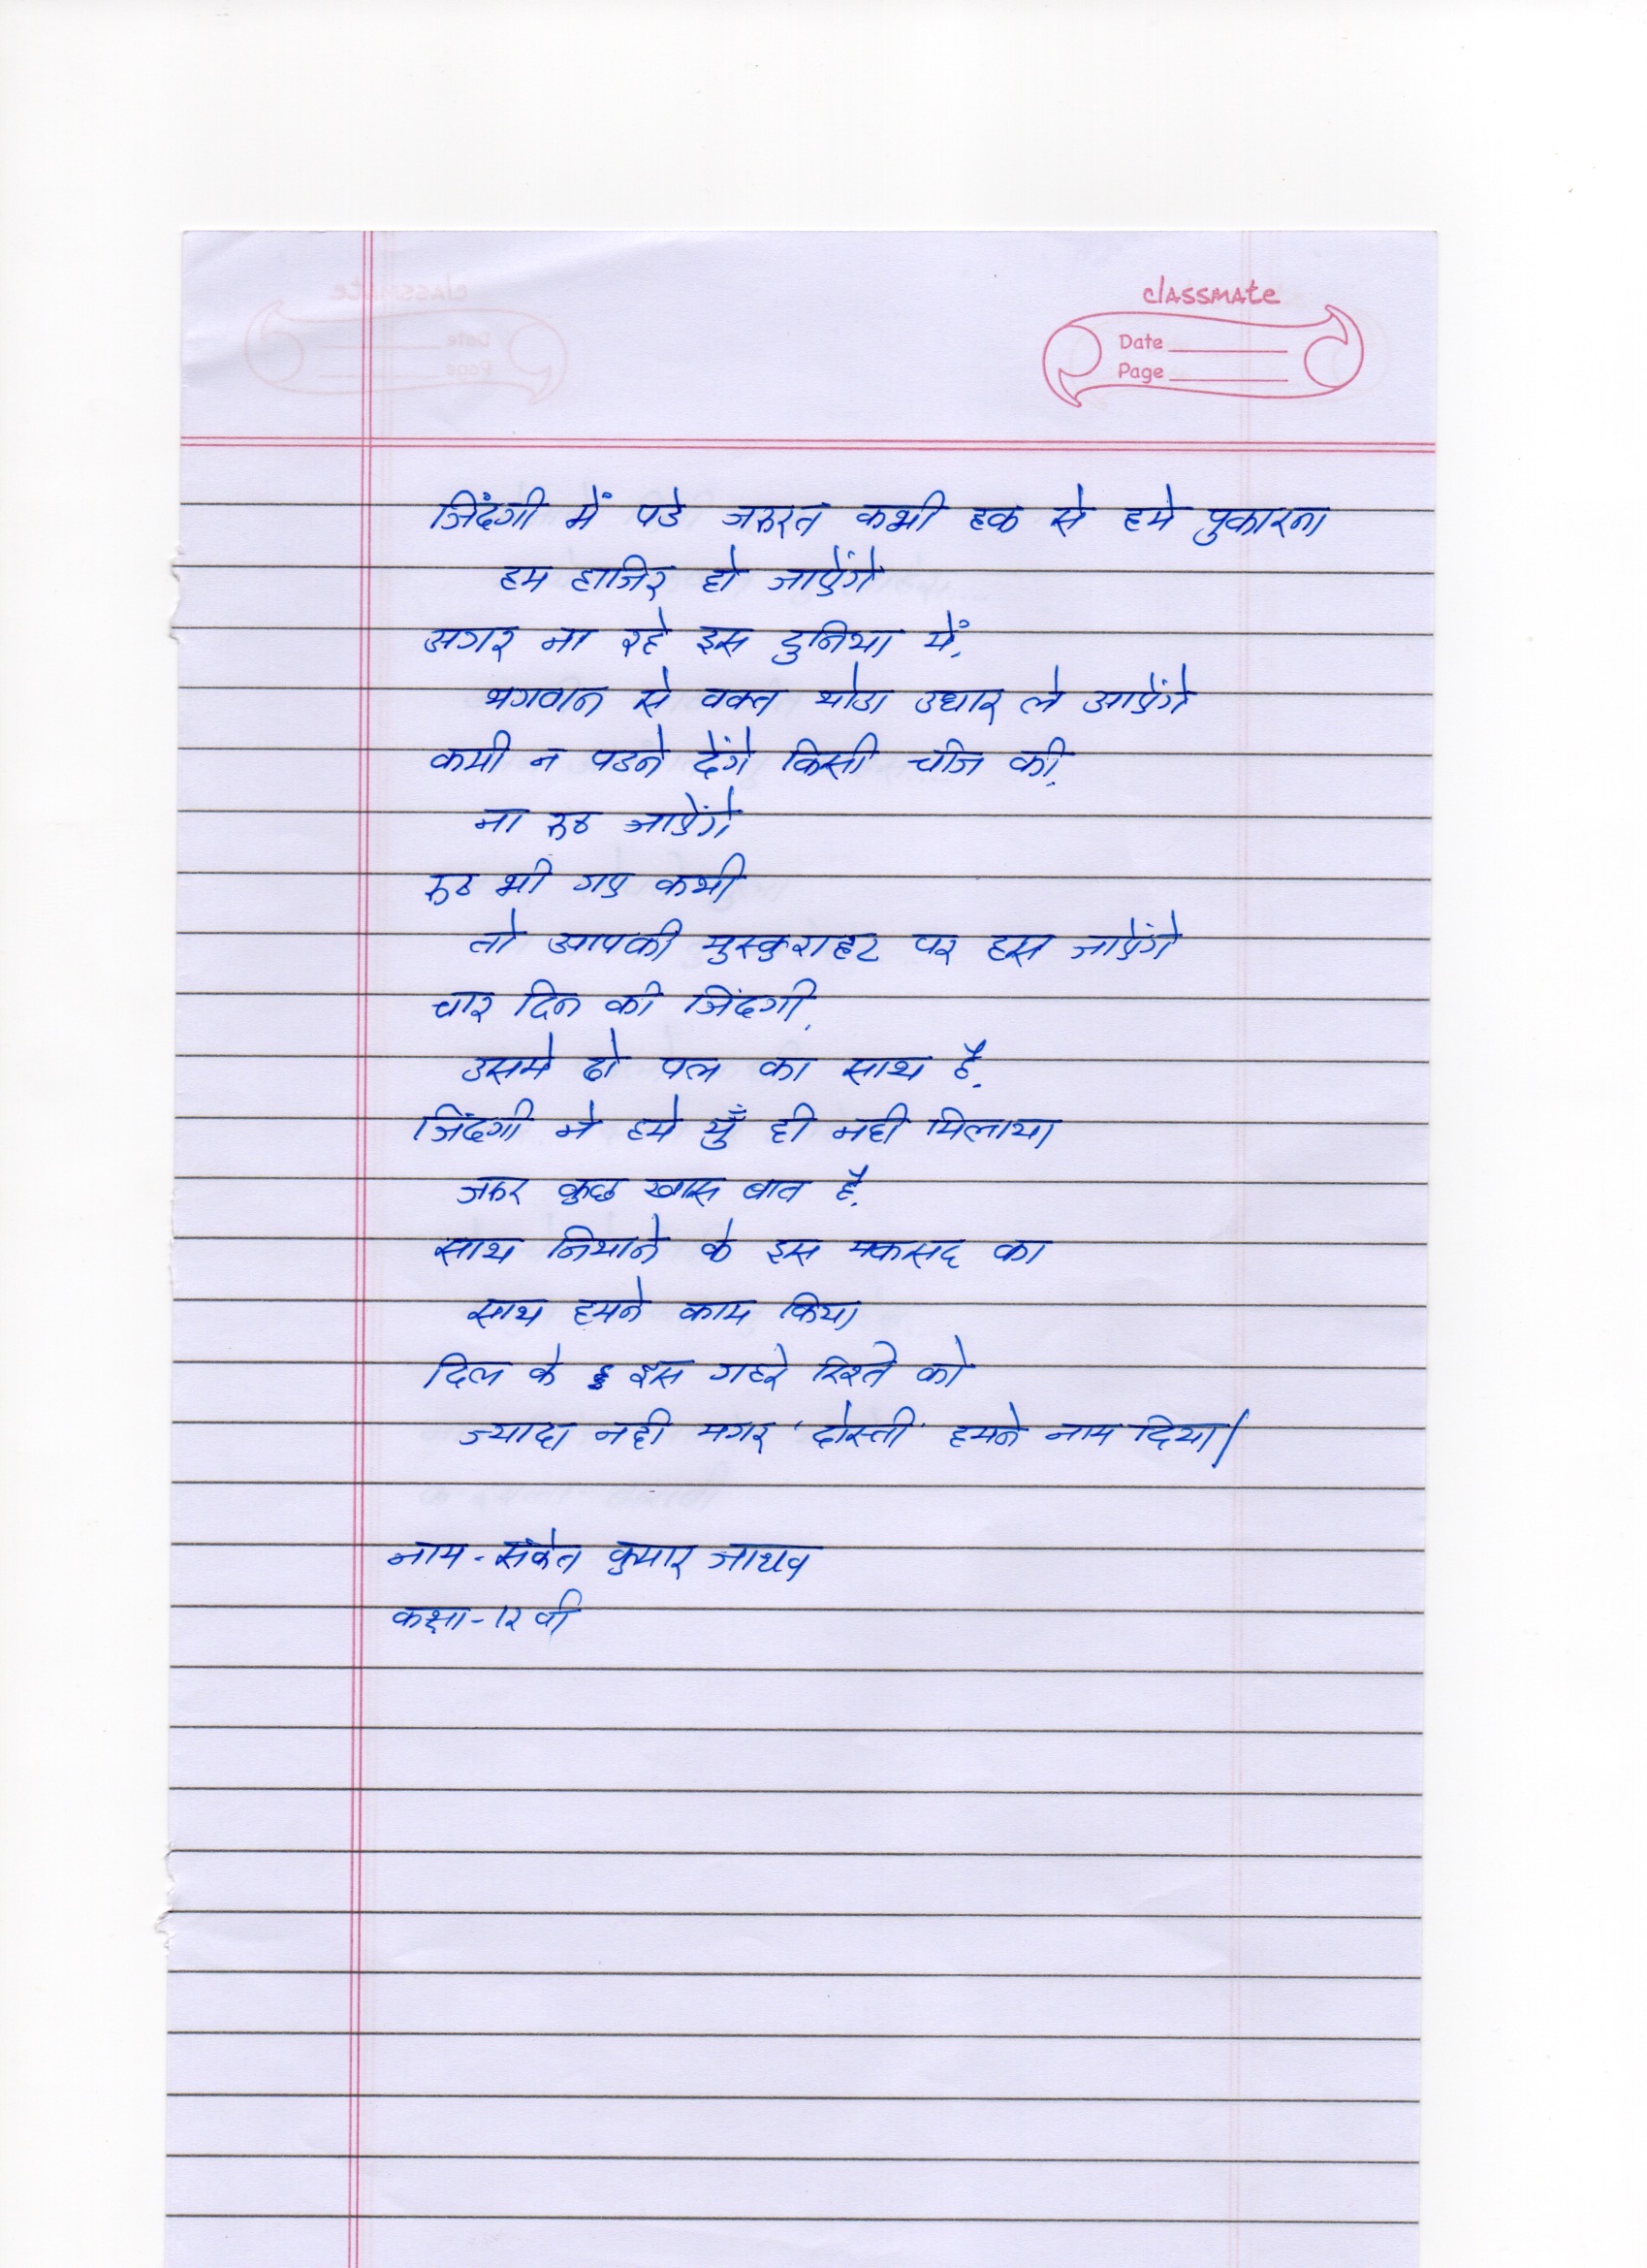 classmate
Date
Page
जिंदगी में पडे जरुरत कभी हक से हमे पुकारना
हम हाजिर हो जाऐंगे
अगर ना रहे इस दुनिया में,
भगवान से वक्त थोडा उधार ले आऐंगे
कमी न पडने देंगे किसी चीज की,
ना रुठ जाऐंगे
रुठ भी गए कभी
तो आपकी मुस्कुराहट पर हस जाऐंगे
चार दिन की जिंदगी,
उसमे दो पल का साथ है,
जिंदगी ने हमे युँ ही नही मिलाया
जरुर कुछ खास बात है,
साथ निभाने के इस मकसद का
साथ हमने काम किया
दिल के इस गहरे रिश्ते को
ज्यादा नही मगर 'दोस्ती' हमने नाम दिया/
नाम - संकेत कुमार जाधव
कक्षा - 12 वी